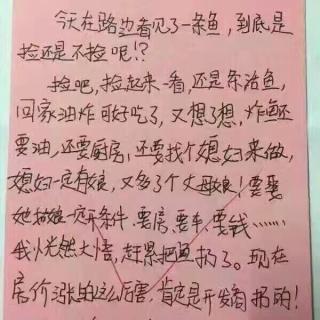 今天在路边看见了一条鱼，到底是
捡还是不捡呢!?
捡吧，捡起来一看，还是条活鱼，
回家油炸可好吃了，又想了想，炸鱼还
要油，还要厨房，还要找个媳妇来做，
媳妇一定有娘，又多了个丈母娘！要娶
她她娘一定开条件、要房、要车、要钱……
我恍然大悟，赶紧把鱼扔了。现在
房价涨的这么厉害，肯定是开发商扔的！